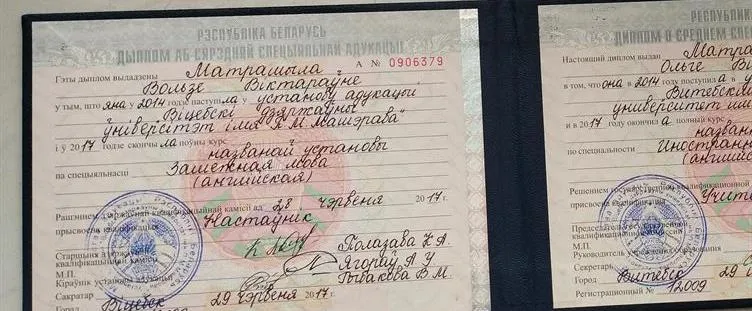 РЭСПУБЛІКА БЕЛАРУСЬ
ДЫПЛОМ АБ СЯРЭДНЯЙ СПЕЦЫЯЛЬНАЙ АДУКАЦЫІ
А № 0906379
Гэты дыплом выдадзены Матрамыла
Вользе Віктараўне
у тым, што яна у 2014 годзе паступіла у установу адукацыі
Віцебскі дзяржаўны
ўніверсітэт імя П.М. Машэрава"
і ў 2017 годзе скончыла поўны курс
названай установы
па спецыяльнасці Замежная мова
(англійская)
Рашэннем дзяржаўнай кваліфікацыйнай камісіі ад 28 чэрвеня 2017 г.
прысвоена кваліфікацыя Настаўнік
Старшыня дзяржаўнай
кваліфікацыйнай камісіі
М.П.
Кіраўнік установы адукацыі
Сакратар Рыбакова В.М.
Горад Віцебск 29 чэрвеня 2017 г.
РЕСПУБЛИК
ДИПЛОМ О СРЕДНЕМ СПЕЦ
Настоящий диплом выдан Матра
Ольге Ви
в том, что она в 2014 поступила в
Витебский
университет
и в 2017 году окончила полный курс
назван
по специальности Иностран
(англий
Решением государственной квалификационной
присвоена квалификация Учит
Председатель государственной
квалификационной комиссии
М.П.
Руководитель учреждения образования
Секретарь
Город Витебск 29
Регистрационный № 12009